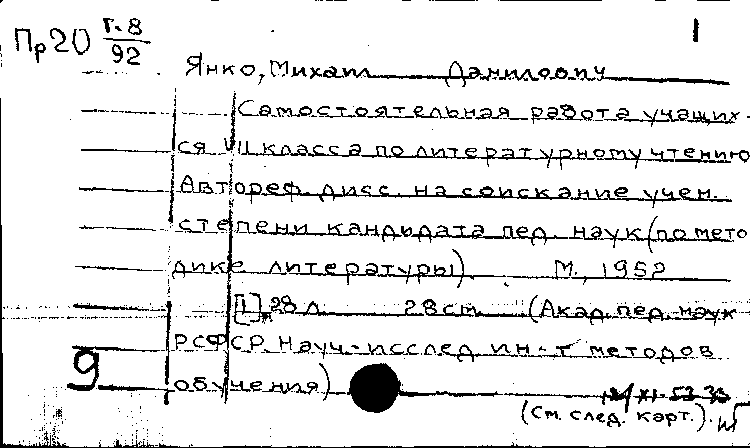 Пр20 Г-8/92
1
Янко, Михаил Данилович
Самостоятельная работа учащих-
ся VII класса по литературному чтению
Автореф. дисс. на соискание учен.
степени кандидата пед. наук (по мето
дике литературы). М., 1952
[1], 28 л. 28 см. (Акад. пед. наук
РСФСР. Науч.-исслед. ин-т методов
9 обучения)
(См. след. карт.).